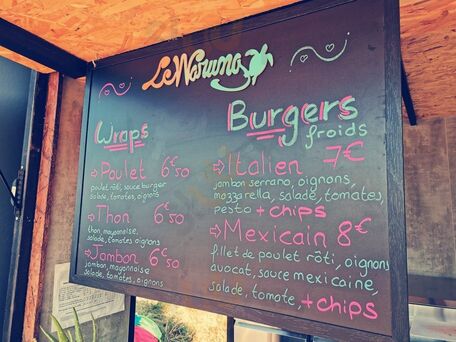 Le Waruna
Wraps
→ Poulet 6€50
poulet rôti, sauce burger
salade, tomates, oignons
→ Thon 6€50
thon, mayonnaise,
salade, tomates, oignons
→ Jambon 6€50
jambon, mayonnaise
salade, tomates, oignons
Burgers
froids
→ Italien 7€
jambon serrano, oignons,
mozzarella, salade, tomates,
pesto + chips
→ Mexicain 8€
filet de poulet rôti, oignons
avocat, sauce mexicaine,
salade, tomate, + chips